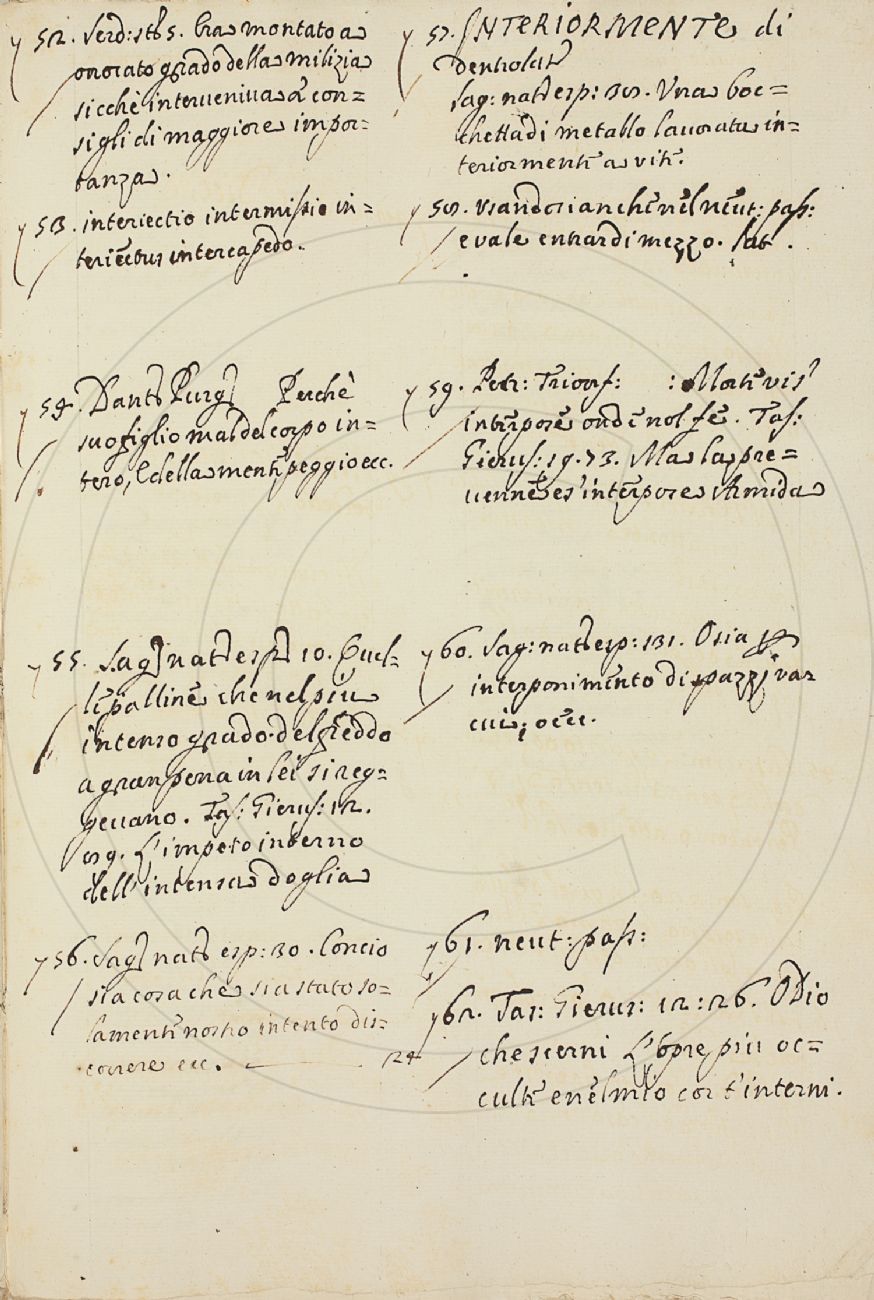 52. Serd: st: 5. Era montato a
onorato grado della milizia
sicchè interveniva a con=
sigli di maggiore impor=
tanza.
53. interiectio intermissio in=
teriectus intercapedo.
54. Dant: Purg: Perchè
suo figlio mal del corpo in=
tero, E della mente peggio ecc.
55. Sag: nat: esp: 10. Quel=
le palline che nel più
intenso grado del freddo
a gran pena in lei si reg=
gevano. Tas: Gierus: 12.
89. L'impeto interno
dell'intensa doglia
56. Sag: nat: esp: 30. Concio
sia cosa che sia stato so=
lamente nostro intento dis=
correre ecc. 24
57. INTERIORMENTE di
dentro lat:
Sag: nat: esp: 38. Una boc=
chetta di metallo lavorata in=
teriormente a vite.
58. usandosi anche nel neut: pass:
e vale entrar di mezzo. lat.
59. Petr: Trionf: : Morte vis'
interpose onde nol fe. Tas:
Gierus: 19. 73. Ma la pre=
venne e s'interpose Armida
60. Sag: nat: esp: 131. O sia
interponimento di spazzi va
cui, o ecc.
61. neut: pass:
62. Tas: Gierus: 12: 26. O Dio
che scerni L'opre più oc=
culte e nel mio cor t'interni.